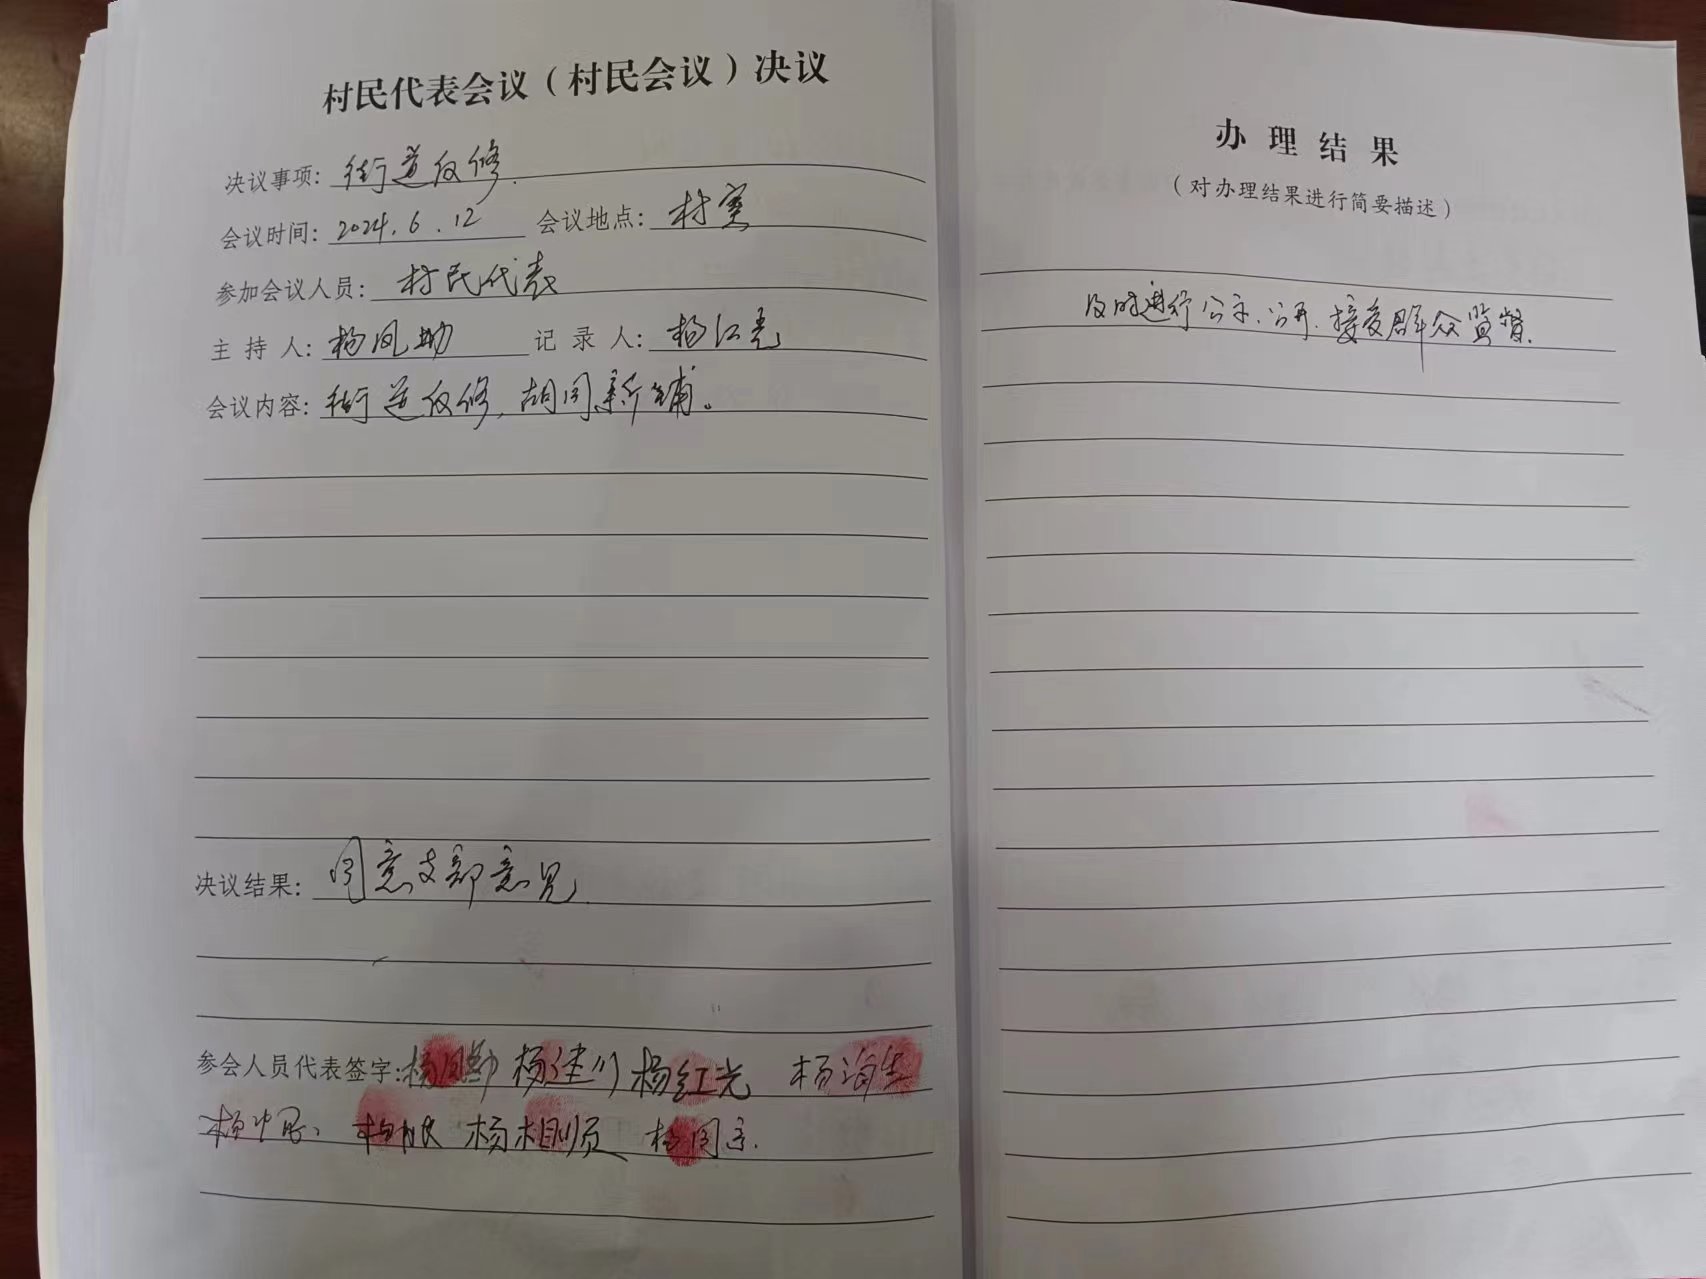 村民代表会议（村民会议）决议
决议事项：街道反修.
会议时间：2024.6.12 会议地点：村室
参加会议人员：村民代表
主持人：杨凤勤 记录人：杨红光
会议内容：街道反修，胡同新铺。
决议结果：同意支部意见.
参会人员代表签字：杨凤勤 杨建川 杨红光 杨海生
杨相顺
办理结果
（对办理结果进行简要描述）
及时进行公示、公开.接受群众监督.